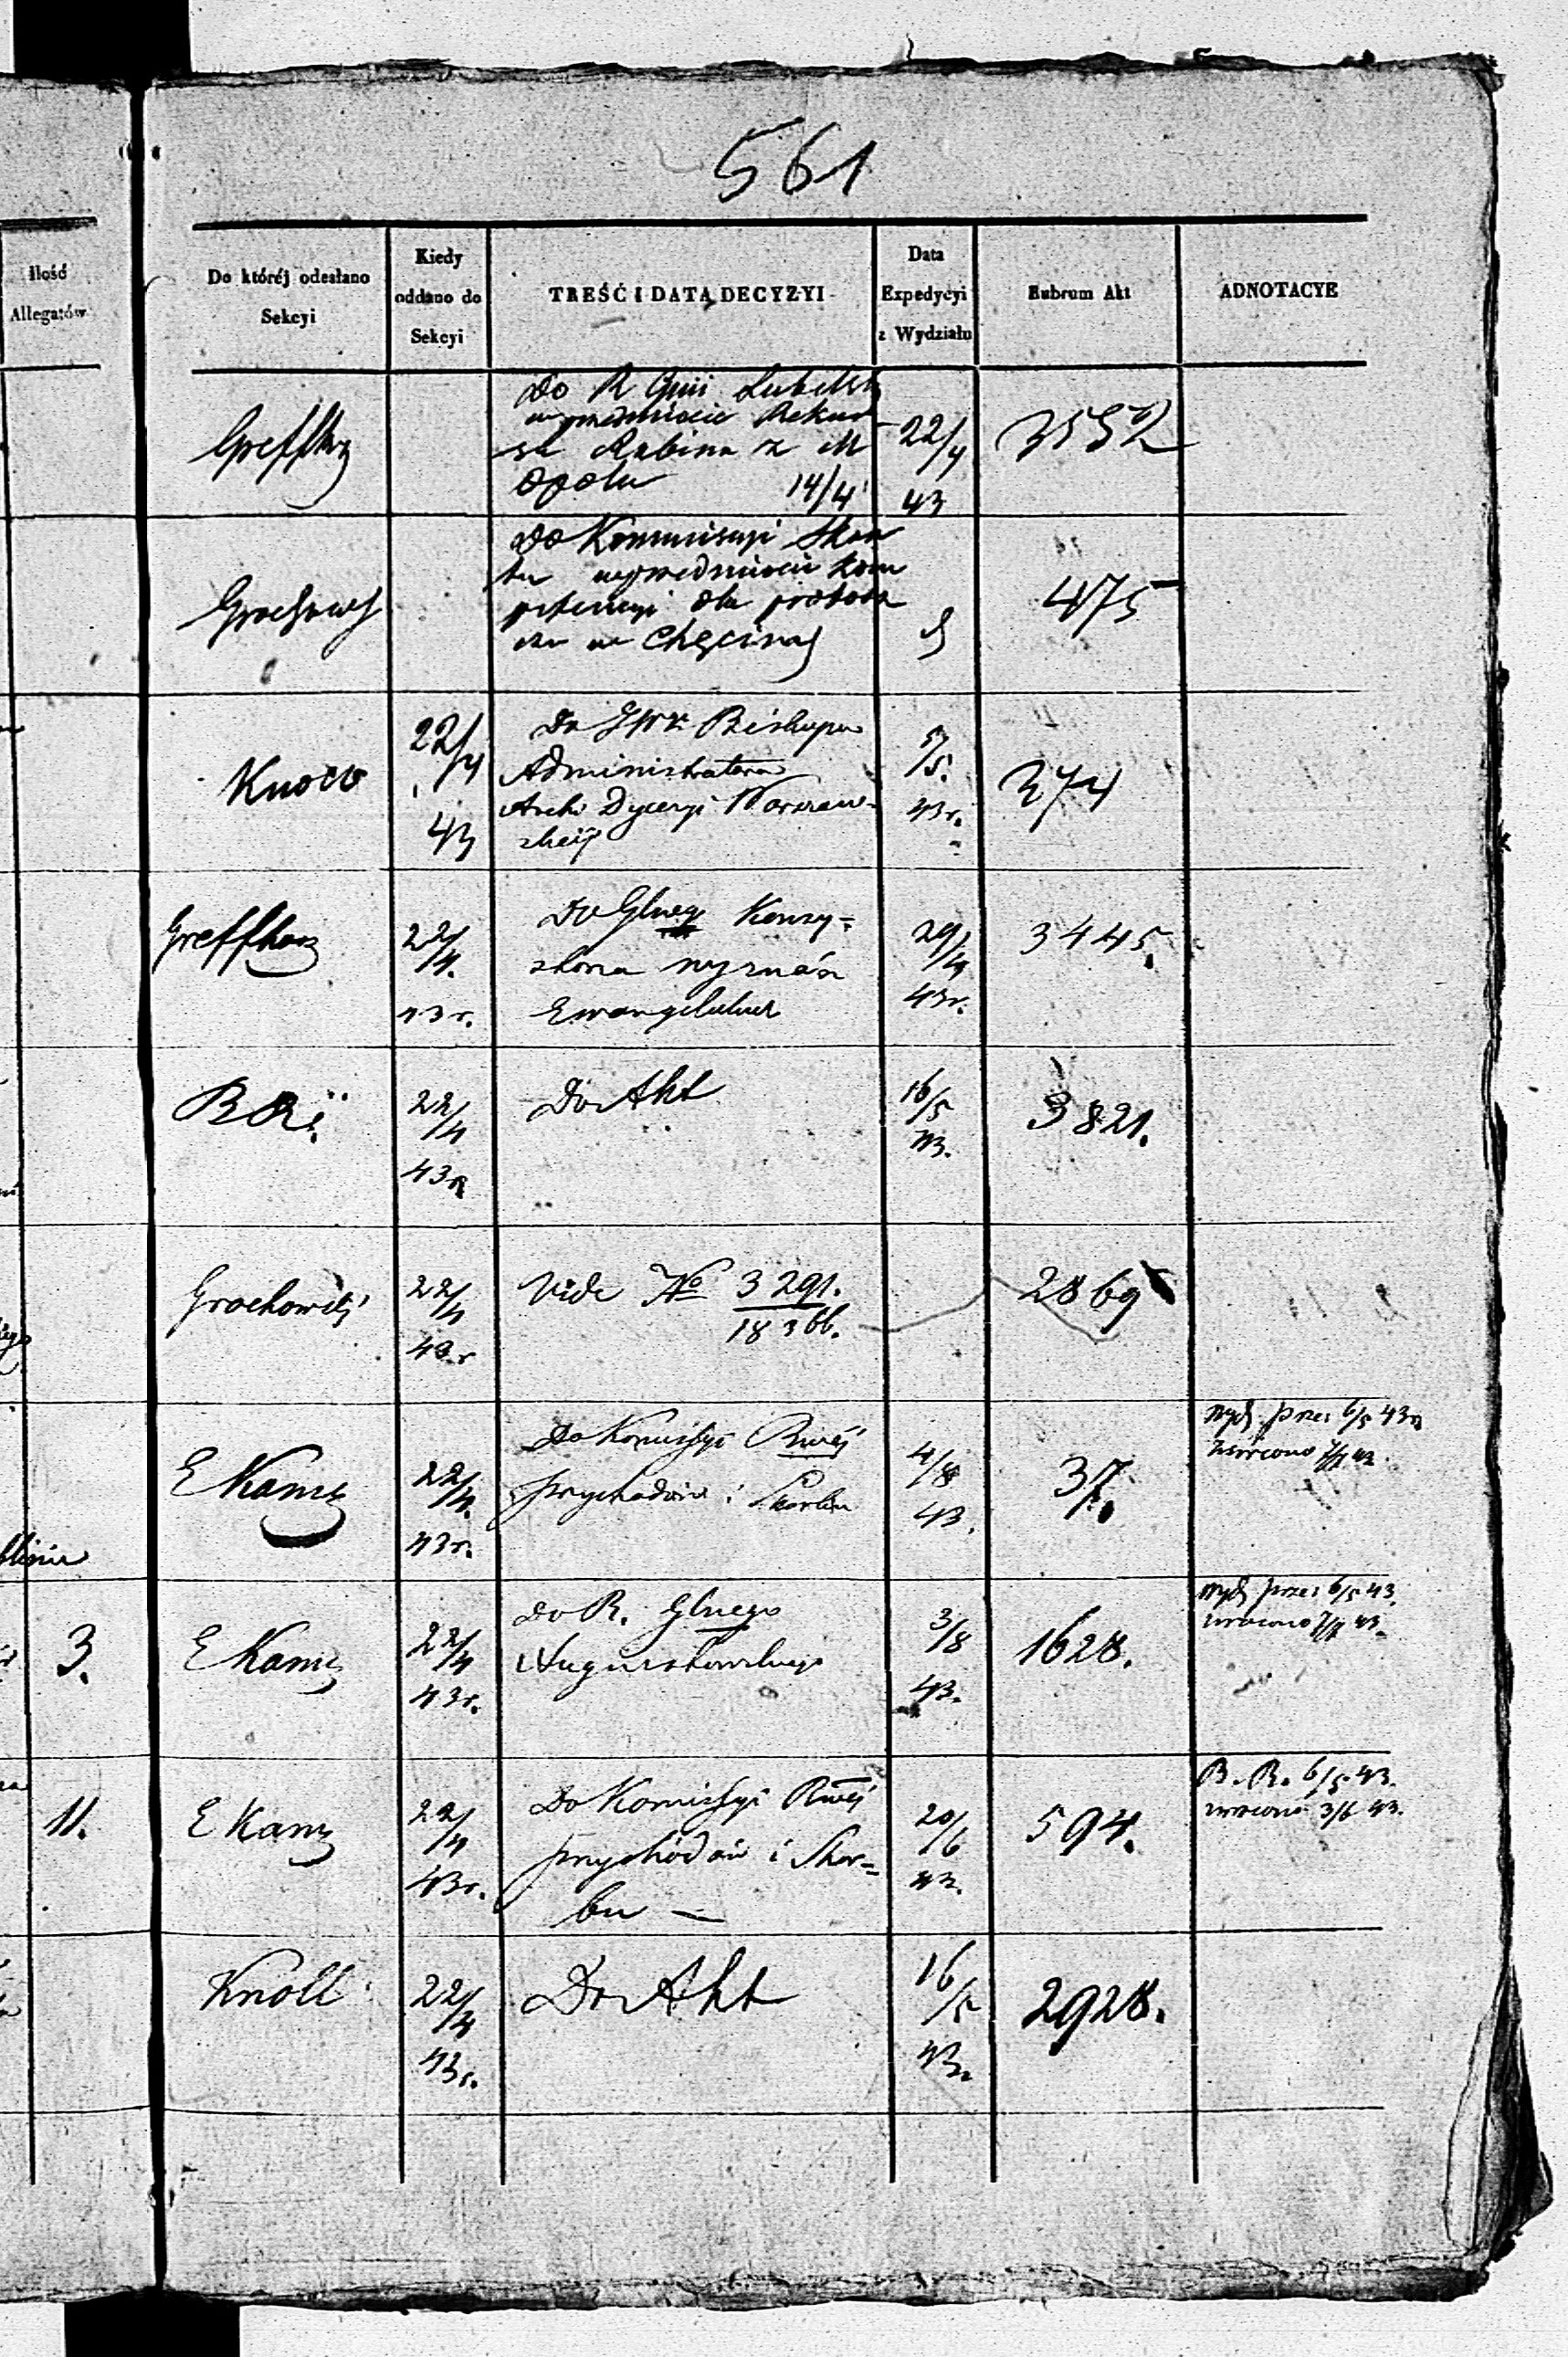 561
Ilość
Allegatów
Do któréj odesłano
Sekcyi
Kiedy
oddano do
Sekcyi
TREŚĆ I DATA DECYZYI
Data
Expedycyi
z Wydziału
Rubrum Akt
ADNOTACYE
Do R Gnii Lubelsk
w przedmiocie Rekur
su Rabina z M
Opola 14/4
22/4
43
Do Kommissyi Skar
bu w przedmiocie kom
petencyi dla probosz
cza w Chęcinach
475
Knoll
22/4
43
Do JWX Biskupa
Administratora
Archi Dyecezyi Warszaw-
skiéj
5/5.
43r.
374
22/4.
43r.
Do Głneg Konsy=
storza wyznań
Ewangelickich
29/4
43r.
3445.
22/4
43r
Do Akt
16/5
43.
3821.
Grochowski
22/4
43r
Vide No 3291.
18366.
2869
E Kamz
22/4.
43r.
Do Komissyi Rwéj
Przychodów i Skarbu
4/8
43.
37.
przez 6/5 43r
zwrócono
3.
E Kamz
22/4
43r.
Do R. Głnego
Augustowskiego
3/8
43.
1628.
przez 6/5 43.
zwrócono 43.
11.
E Kamz
22/4
43r.
Do Komissyi Rwéj
Przychodów i Skar=
bu —
20/6
43.
594.
B. R. 6/5 43.
zwrócono 3/6 43.
Knoll
22/4
43r.
Do Akt
16/5
43.
2928.